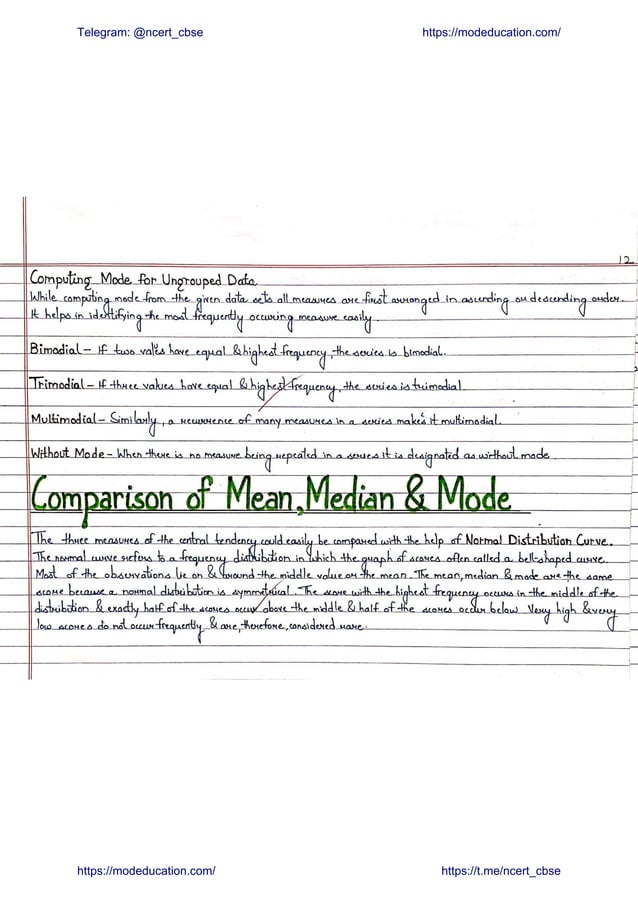 Telegram: @ncert_cbse https://modeducation.com/
12
Computing Mode for Ungrouped Data
While computing mode from the given data sets all measures are first arranged in ascending or descending order.
It helps in identifying the most frequently occuring measure easily.
Bimodial - If two values have equal & highest frequency, the series is bimodial.
Trimodial - If three values have equal & highest frequency, the series is trimodial.
Multimodial - Similarly, a recurrence of many measures in a series makes it multimodial.
Without Mode - When there is no measure being repeated in a series it is designated as without mode.
Comparison of Mean, Median & Mode
The three measures of the central tendency could easily be compared with the help of Normal Distribution Curve.
The normal curve refers to a frequency distribution in which the graph of scores often called a bell-shaped curve.
Most of the observations lie on & around the middle value or the mean. The mean, median & mode are the same
score because a normal distribution is symmetrical. The score with the highest frequency occurs in the middle of the
distribution & exactly half of the scores occur above the middle & half of the scores occur below. Very high & very
low scores do not occur frequently & are, therefore, considered rare.
https://modeducation.com/ https://t.me/ncert_cbse